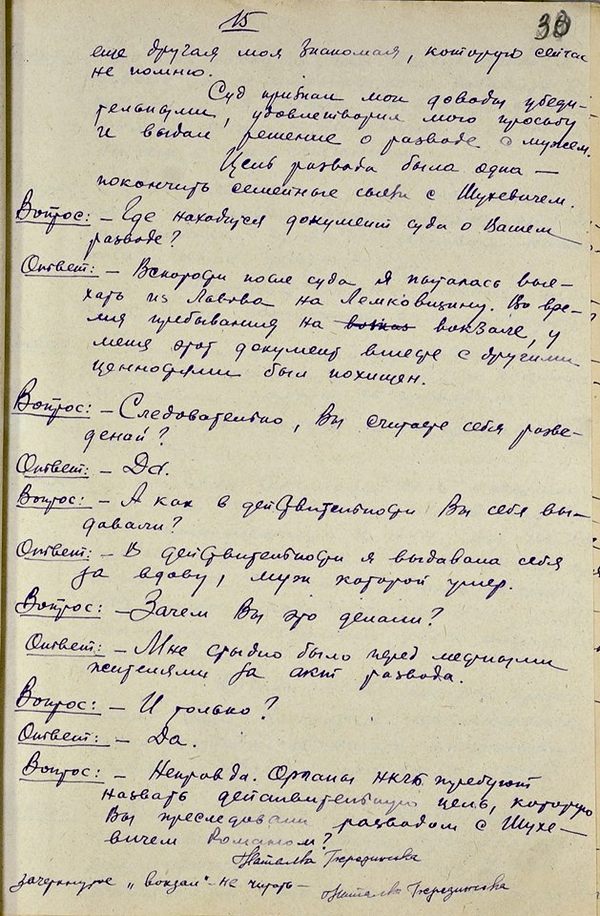 15
30
еще другая моя знакомая, которую сейчас
не помню.
Суд признал мои доводы убеди-
тельными, удовлетворил мою просьбу
и выдал решение о разводе с мужем.
Цель развода была одна —
покончить семейные связи с Шухевичем.
Вопрос: – Где находится документ суда о Вашем
разводе?
Ответ: – Вскорости после суда я пыталась вые-
хать из Львова на Лемковщину. Во вре-
мя пребывания на вокзал вокзале, у
меня этот документ вместе с другими
ценностями был похищен.
Вопрос: – Следовательно, Вы считаете себя разве-
деной?
Ответ: – Да.
Вопрос: – А как в действительности Вы себя вы-
давали?
Ответ: – В действительности я выдавала себя
за вдову, муж которой умер.
Вопрос: – Зачем Вы это делали?
Ответ: – Мне стыдно было перед местными
жителями за акт развода.
Вопрос: – И только?
Ответ: – Да.
Вопрос: – Неправда. Органы НКГБ требуют
назвать действительную цель, которую
Вы преследовали разводом с Шухе-
вичем Романом?
Наталья Березинська
зачеркнутое „вокзал" – не читать –
Наталья Березинська